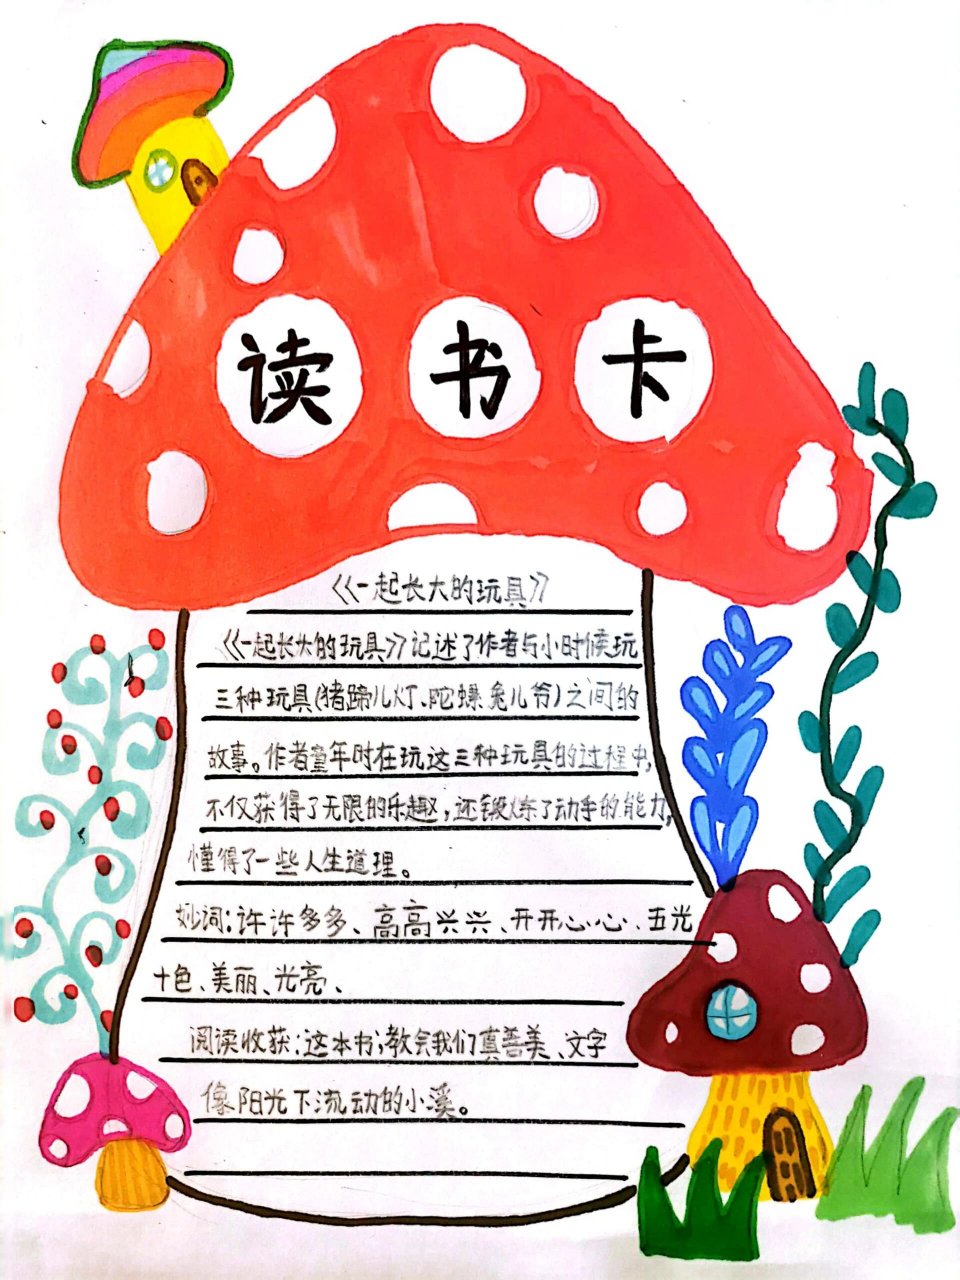 读书卡
《一起长大的玩具》
《一起长大的玩具》记述了作者与小时候玩
三种玩具(猪蹄儿灯、陀螺、兔儿爷)之间的
故事。作者童年时在玩这三种玩具的过程中,
不仅获得了无限的乐趣,还锻炼了动手的能力,
懂得了一些人生道理。
妙词:许许多多、高高兴兴、开开心心、五光
十色、美丽、光亮、
阅读收获:这本书,教会我们真善美、文字
像阳光下流动的小溪。